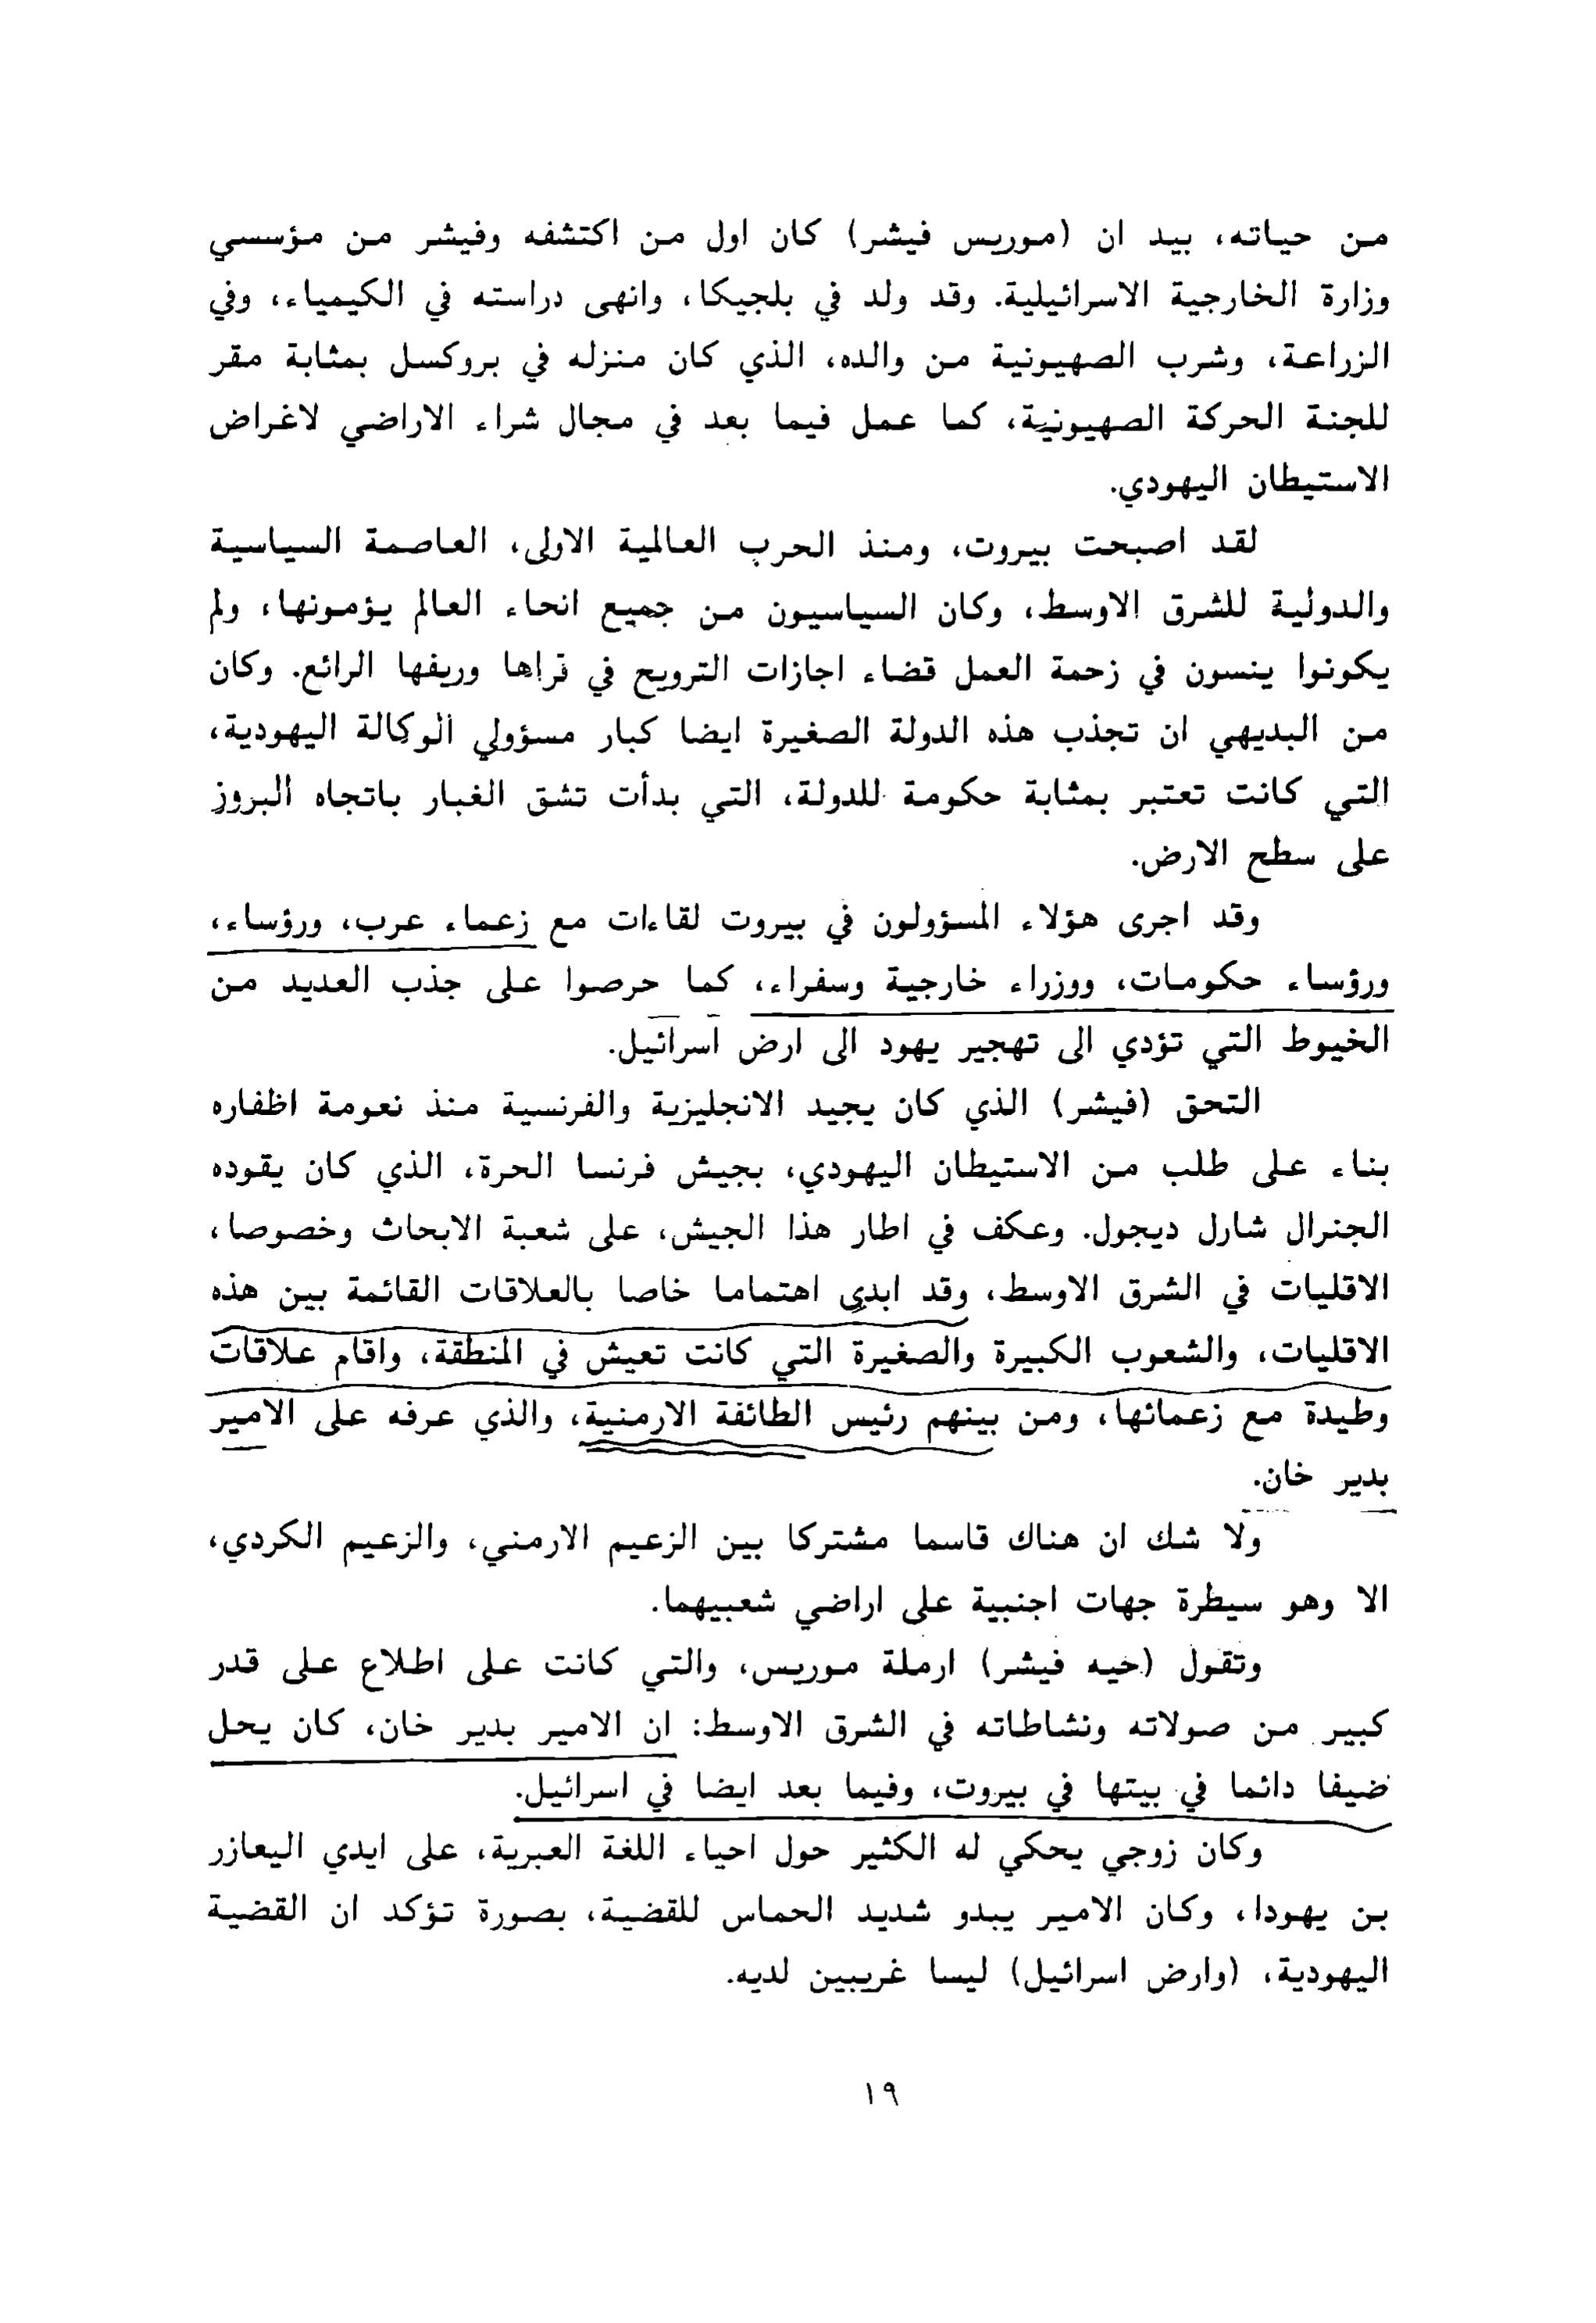 من حياته، بيد ان (موريس فيشر) كان اول من اكتشفه وفيشر من مؤسسي
وزارة الخارجية الاسرائيلية. وقد ولد في بلجيكا، وانهى دراسته في الكيمياء، وفي
الزراعة، وشرب الصهيونية من والده، الذي كان منزله في بروكسل بمثابة مقر
للجنة الحركة الصهيونية، كما عمل فيما بعد في مجال شراء الاراضي لاغراض
الاستيطان اليهودي.
لقد اصبحت بيروت، ومنذ الحرب العالمية الاولى، العاصمة السياسية
والدولية للشرق الاوسط، وكان السياسيون من جميع انحاء العالم يؤمونها، ولم
يكونوا ينسون في زحمة العمل قضاء اجازات الترويح في قراها وريفها الرائع. وكان
من البديهي ان تجذب هذه الدولة الصغيرة ايضا كبار مسؤولي الوكالة اليهودية،
التي كانت تعتبر بمثابة حكومة للدولة، التي بدأت تشق الغبار باتجاه البروز
على سطح الارض.
وقد اجرى هؤلاء المسؤولون في بيروت لقاءات مع زعماء عرب، ورؤساء،
ورؤساء حكومات، ووزراء خارجية وسفراء، كما حرصوا على جذب العديد من
الخيوط التي تؤدي الى تهجير يهود الى ارض اسرائيل.
التحق (فيشر) الذي كان يجيد الانجليزية والفرنسية منذ نعومة اظفاره
بناء على طلب من الاستيطان اليهودي، بجيش فرنسا الحرة، الذي كان يقوده
الجنرال شارل ديجول. وعكف في اطار هذا الجيش، على شعبة الابحاث وخصوصا،
الاقليات في الشرق الاوسط، وقد ابدى اهتماما خاصا بالعلاقات القائمة بين هذه
الاقليات، والشعوب الكبيرة والصغيرة التي كانت تعيش في المنطقة، واقام علاقات
وطيدة مع زعمائها، ومن بينهم رئيس الطائفة الارمنية، والذي عرفه على الامير
بدير خان.
ولا شك ان هناك قاسما مشتركا بين الزعيم الارمني، والزعيم الكردي،
الا وهو سيطرة جهات اجنبية على اراضي شعبيهما.
وتقول (خيه فيشر) ارملة موريس، والتي كانت على اطلاع على قدر
كبير من صولاته ونشاطاته في الشرق الاوسط: ان الامير بدير خان، كان يحل
ضيفا دائما في بيتها في بيروت، وفيما بعد ايضا في اسرائيل.
وكان زوجي يحكي له الكثير حول احياء اللغة العبرية، على ايدي اليعازر
بن يهودا، وكان الامير يبدو شديد الحماس للقضية، بصورة تؤكد ان القضية
اليهودية، (وارض اسرائيل) ليسا غريبين لديه.
١٩